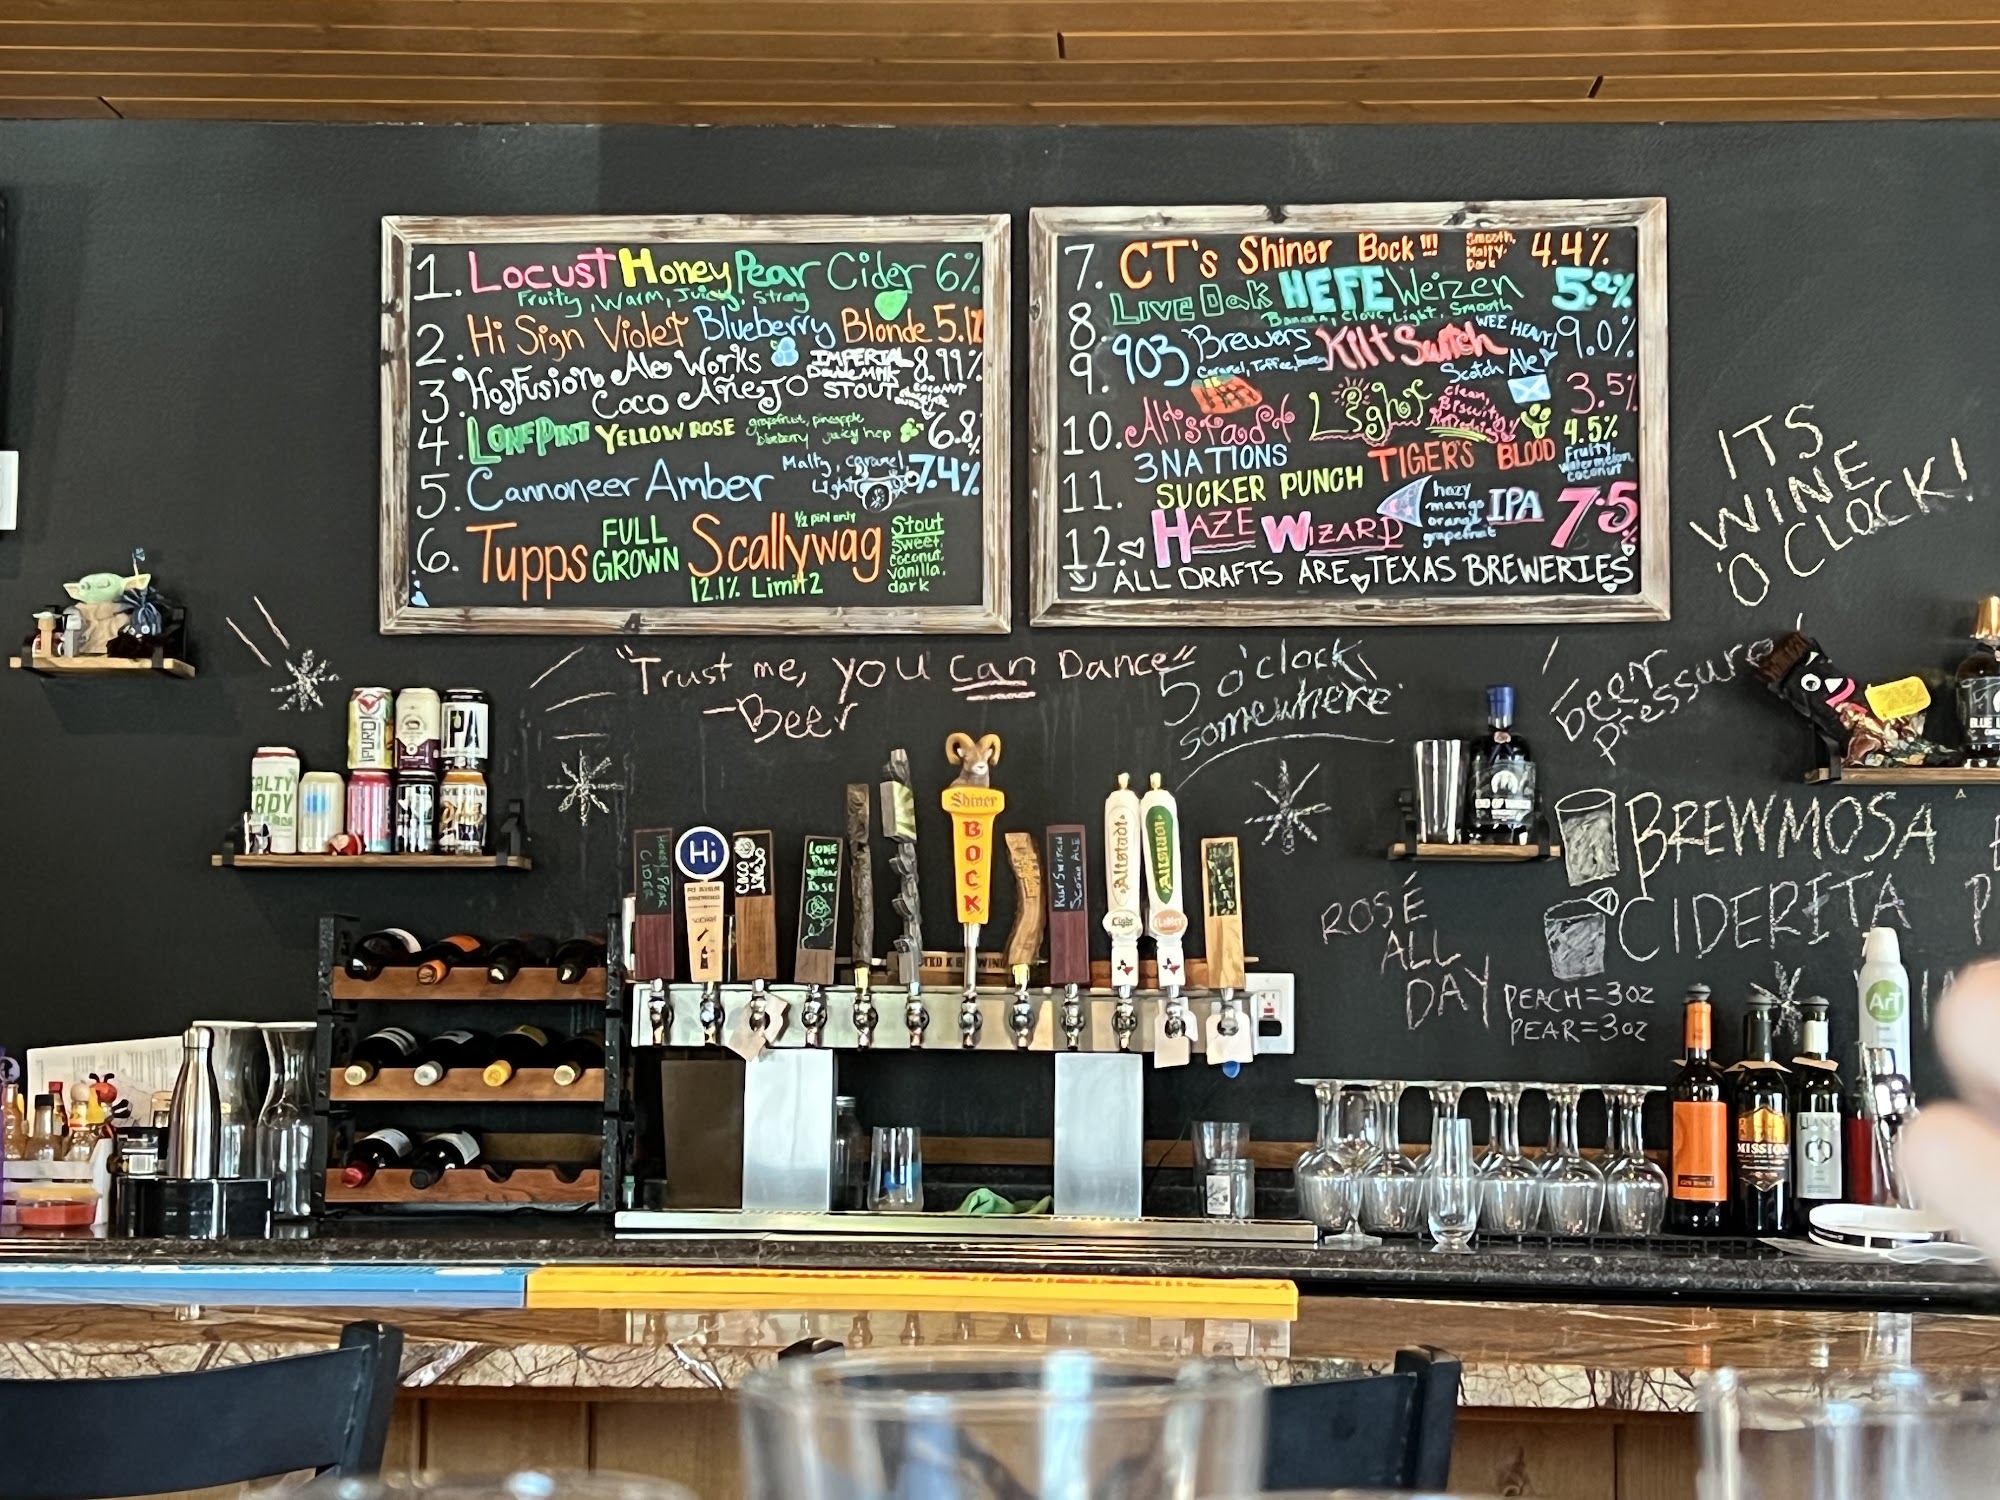 1. Locust Honey Pear Cider 6%
Fruity, Warm, Juicy, Strong
2. Hi Sign Violet Blueberry Blonde 5.1%
3. HopFusion Ale Works IMPERIAL 8.99%
Coco Añejo Double Milk STOUT
4. LONE PINT YELLOW ROSE 6.8%
grapefruit, pineapple
blueberry juicy hop
5. Cannoneer Amber 7.4%
Malty, caramel
Light
6. Tupps FULL GROWN Scallywag
1/2 pint only
12.1% Limit 2
Stout
Sweet,
coconut,
vanilla,
dark
7. CT's Shiner Bock!!! 4.4%
Smooth,
Malty,
Dark
8. LIVE OAK HEFE Weizen 5.2%
Banana, Clove, Light, Smooth
9. 903 Brewers Kilt Switch WEE HEAVY! 9.0%
Caramel, Toffee,
Scotch Ale
10. Altstadt Light 3.5%
Clean,
Biscuity
Refreshing
11. 3 NATIONS TIGER'S BLOOD 4.5%
SUCKER PUNCH
Fruity,
watermelon,
coconut
12. HAZE WIZARD IPA 7.5%
hazy
mango
orange
grapefruit
ALL DRAFTS ARE TEXAS BREWERIES
ITS
WINE
'O CLOCK!
"Trust me, you can Dance"
-Beer
5 o'clock
somewhere
Beer
Pressure
BREWMOSA
CIDERITA
PEACH=3oz
PEAR=3oz
ROSÉ
ALL
DAY
SALTY
LADY
IPA
HONEY PEAR
CIDER
Hi
HI SIGN
COCO
Añejo
LONE
Pint
Yellow
Rose
Shiner
BOCK
KILT SWITCH
SCOTCH ALE
Altstadt
Light
Altstadt
MISSION
ArT